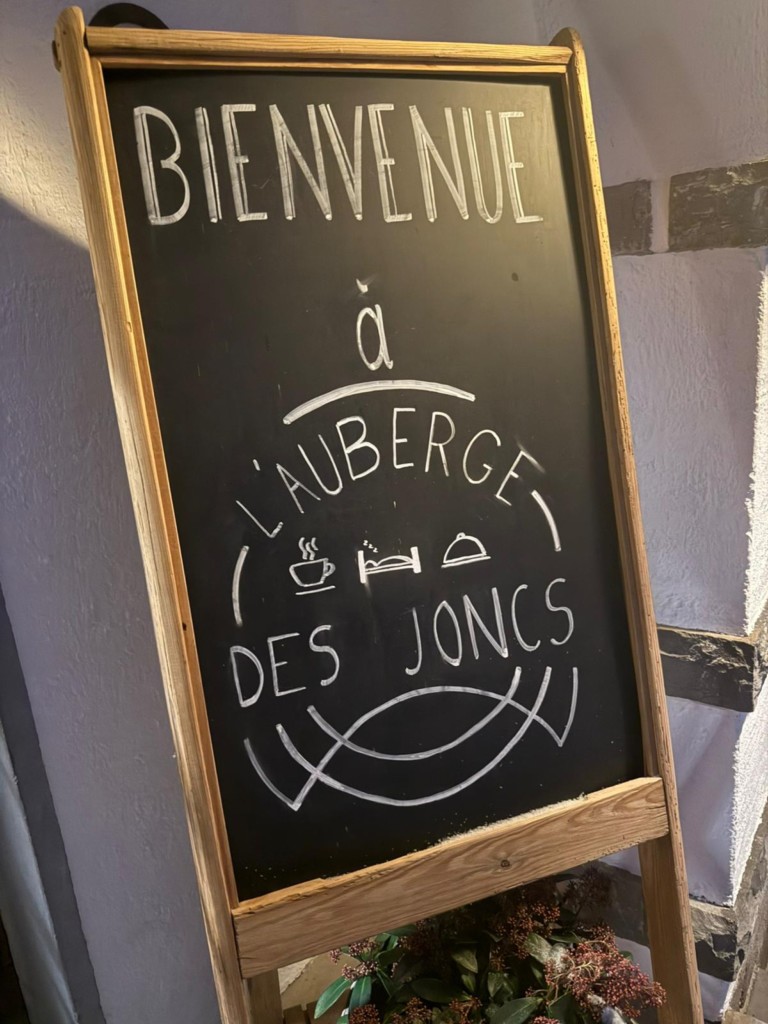 BIENVENUE
à
L'AUBERGE
DES JONCS